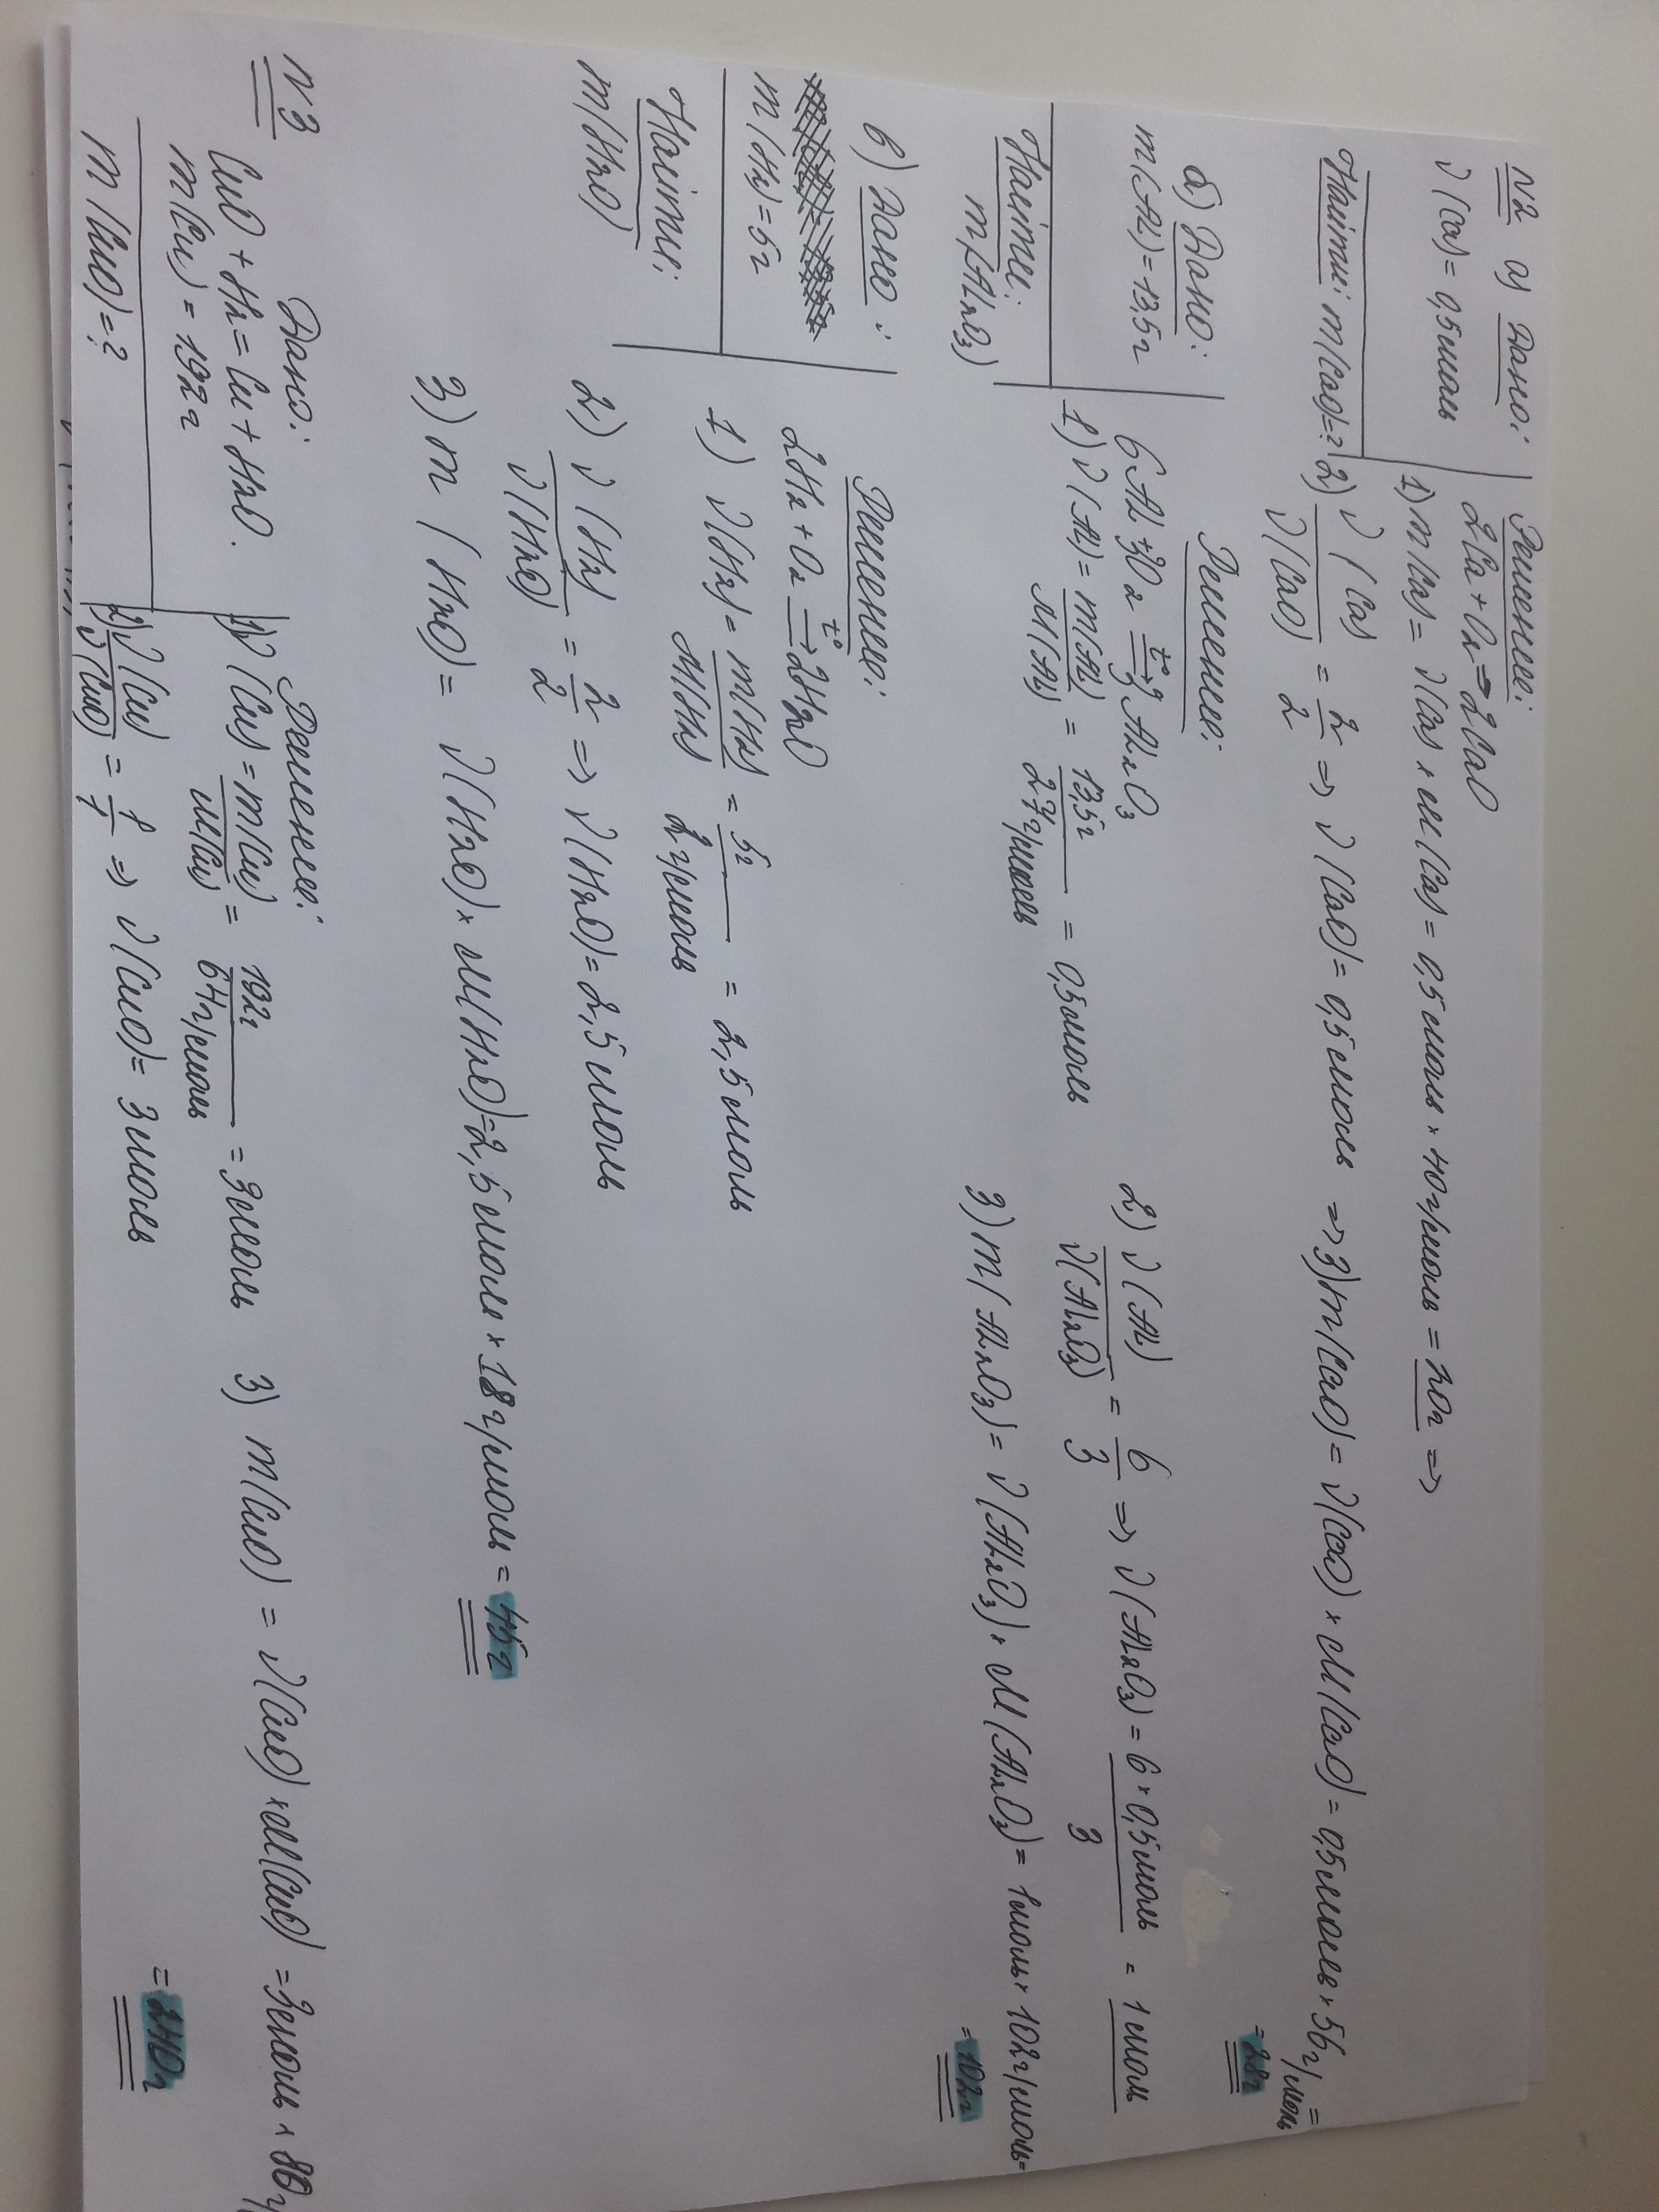 N2 а) Дано:
ν(Ca) = 0,5 моль
Найти: m(CaO) = ?
Решение:
2Ca + O₂ ⇒ 2CaO
1) m(Ca) = ν(Ca) × M(Ca) = 0,5 моль × 40 г/моль = 20 г ⇒
2) ν(Ca)/ν(CaO) = 2/2 ⇒ ν(CaO) = 0,5 моль ⇒ 3) m(CaO) = ν(CaO) × M(CaO) = 0,5 моль × 56 г/моль =
= 28 г
б) Дано:
m(Al) = 13,5 г
Найти:
m(Al₂O₃)
Решение:
6Al + 3O₂ t°→ 3Al₂O₃
1) ν(Al) = m(Al)/M(Al) = 13,5 г/27 г/моль = 0,5 моль
2) ν(Al)/ν(Al₂O₃) = 6/3 ⇒ ν(Al₂O₃) = 6 × 0,5 моль/3 = 1 моль
3) m(Al₂O₃) = ν(Al₂O₃) × M(Al₂O₃) = 1 моль × 102 г/моль =
= 102 г
в) Дано:
m(H₂) = 5 г
Найти:
m(H₂O)
Решение:
2H₂ + O₂ t°→ 2H₂O
1) ν(H₂) = m(H₂)/M(H₂) = 5 г/2 г/моль = 2,5 моль
2) ν(H₂)/ν(H₂O) = 2/2 ⇒ ν(H₂O) = 2,5 моль
3) m(H₂O) = ν(H₂O) × M(H₂O) = 2,5 моль × 18 г/моль = 45 г
N3
Дано:
CuO + H₂ = Cu + H₂O.
m(Cu) = 192 г
m(CuO) = ?
Решение:
1) ν(Cu) = m(Cu)/M(Cu) = 192 г/64 г/моль = 3 моль
2) ν(Cu)/ν(CuO) = 1/1 ⇒ ν(CuO) = 3 моль
3) m(CuO) = ν(CuO) × M(CuO) = 3 моль × 80 г/
= 240 г